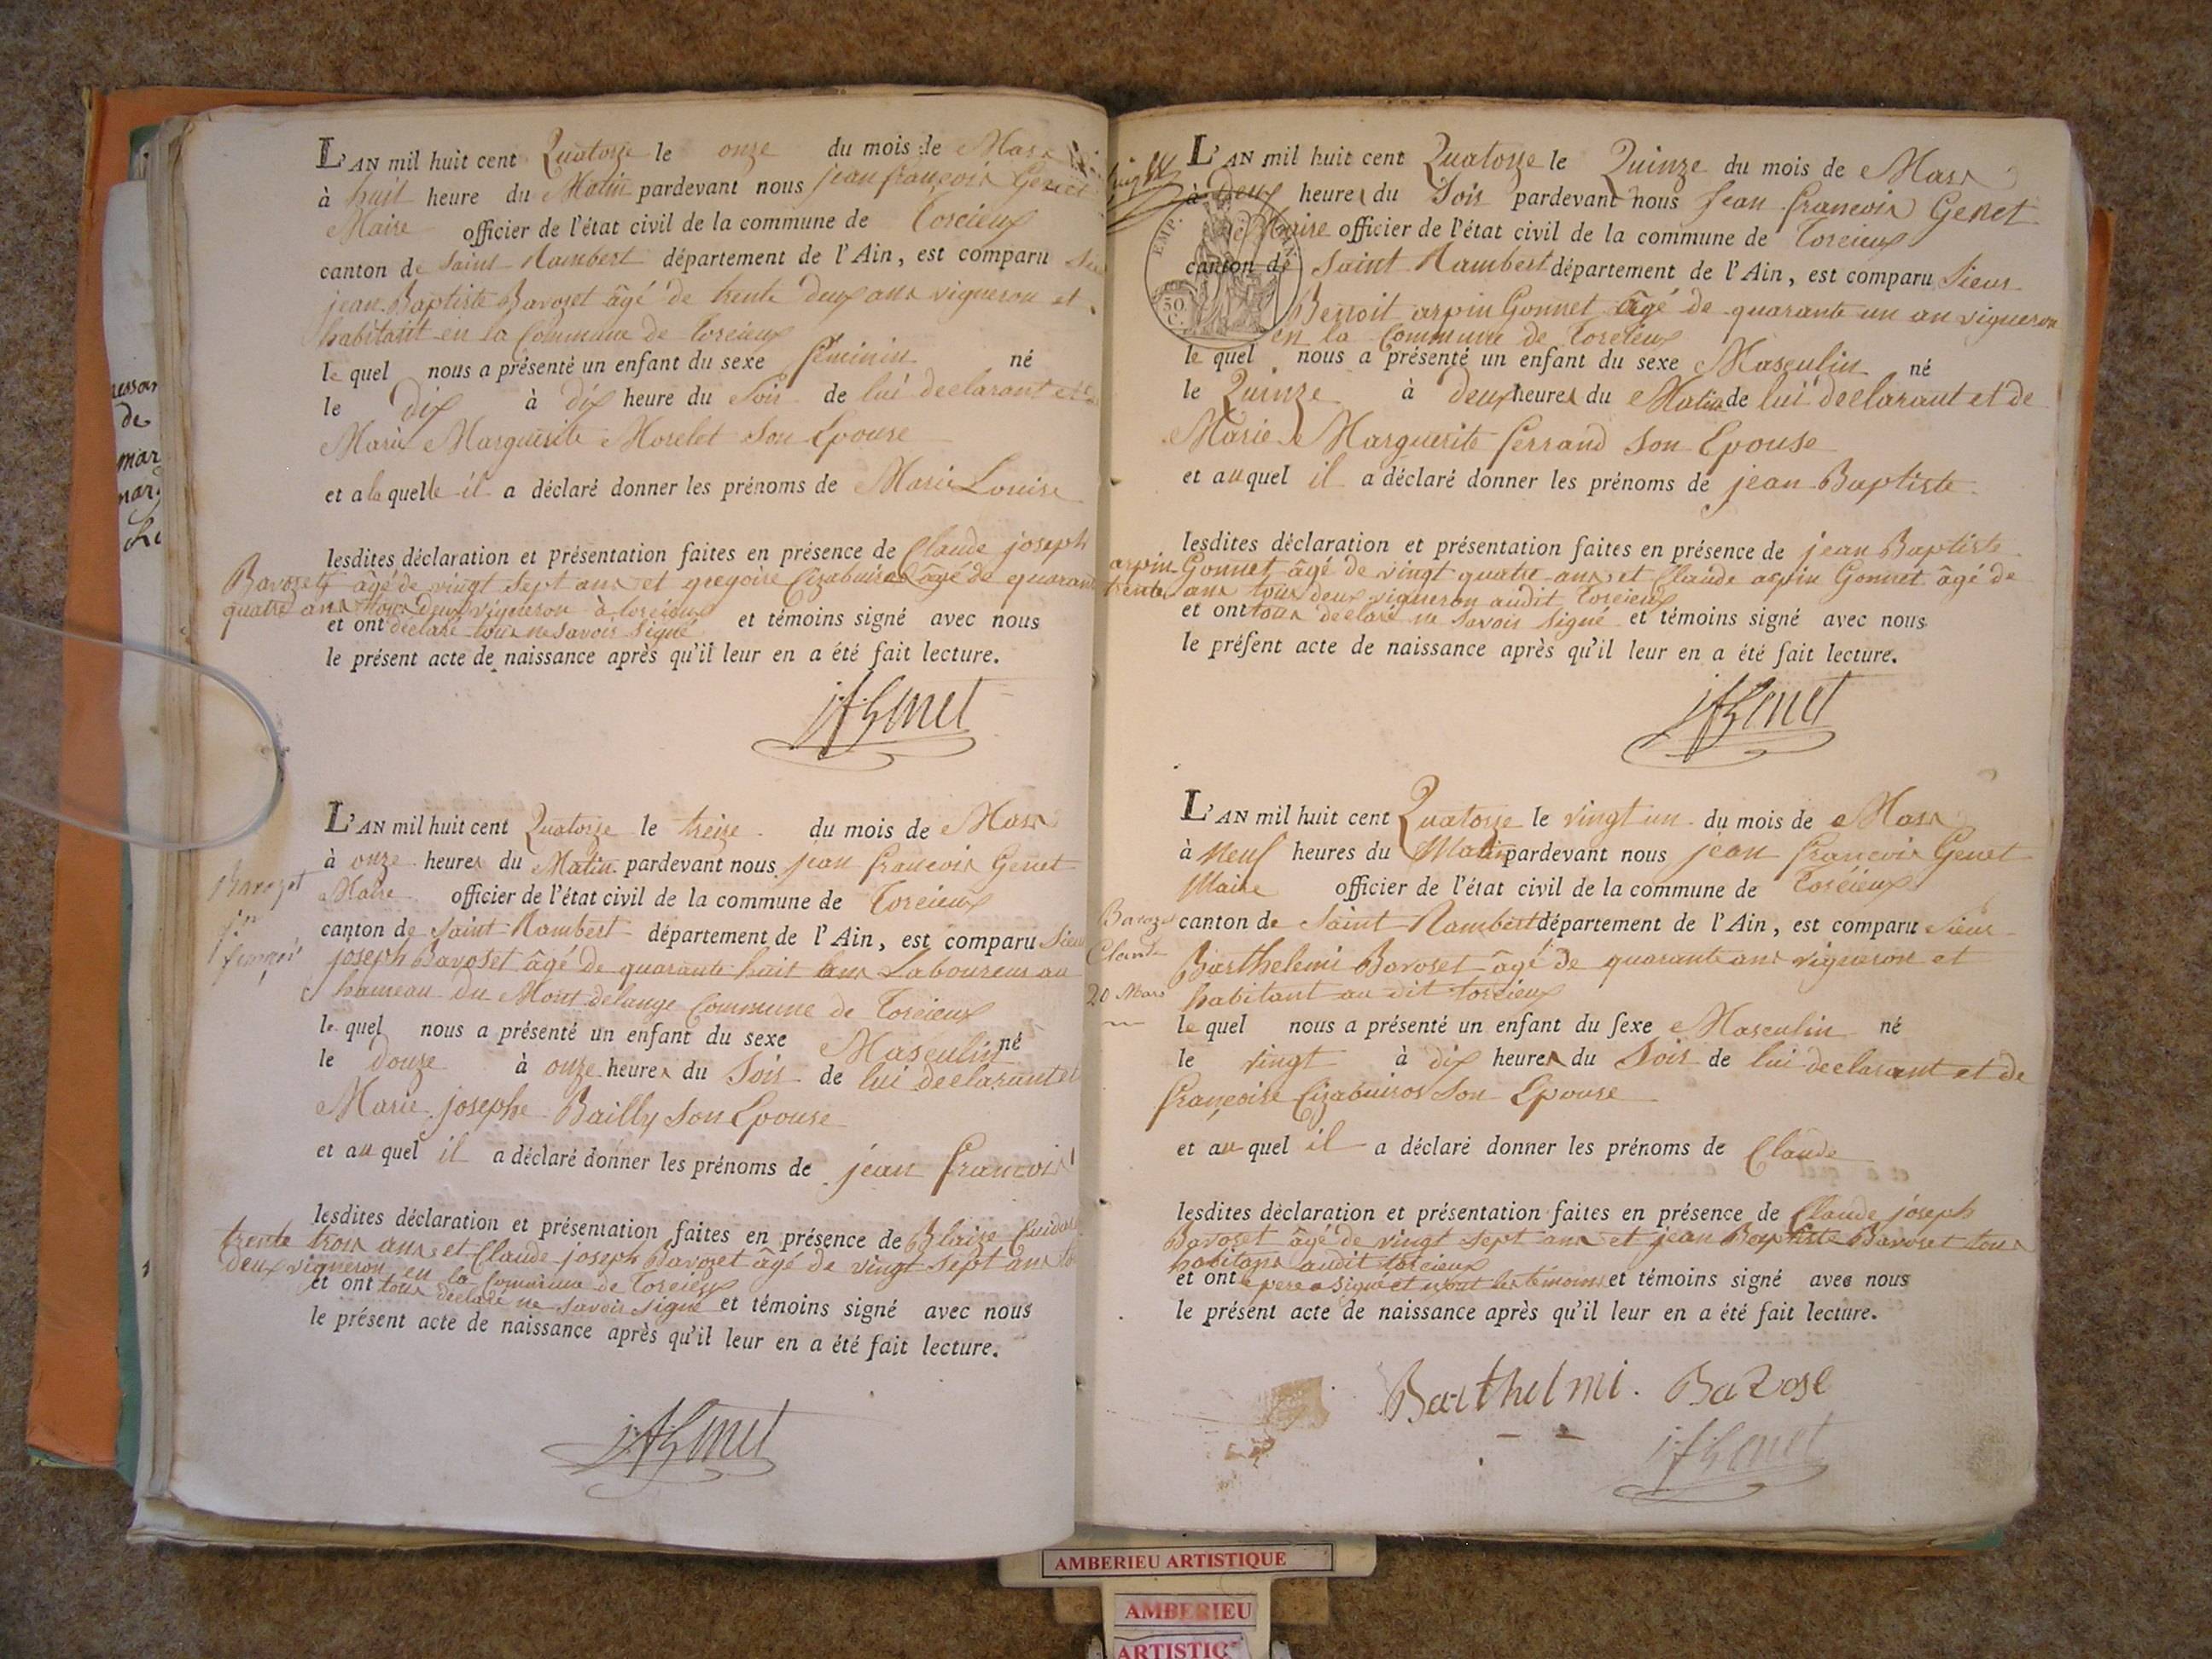 L'AN mil huit cent Quatorze le onze du mois de Mars
à huit heure du Matin pardevant nous jean françois Genet
Maire officier de l'état civil de la commune de Torcieux
canton de Saint Rambert département de l'Ain, est comparu
jean Baptiste Bavozet âgé de trente deux ans vigneron et
habitant en la Commune de Torcieux
le quel nous a présenté un enfant du sexe féminin né
le dix à dix heure du Soir de lui declarant et
Marie Marguerite Morelet Son Epouse
et a la quelle il a déclaré donner les prénoms de Marie Louise
lesdites déclaration et présentation faites en présence de Claude joseph
Bavozet âgé de vingt sept ans et gregoire Cizabuiros âgé de quarante
quatre ans tous deux vigneron à torcieux
et ont déclaré tous ne savoir signé et témoins signé avec nous
le présent acte de naissance après qu'il leur en a été fait lecture.
jfGenet
L'AN mil huit cent Quatorze le treize du mois de Mars
à onze heures du Matin pardevant nous jean francois Genet
Maire officier de l'état civil de la commune de Torcieux
canton de Saint Rambert département de l'Ain, est comparu Sieur
joseph Bavozet âgé de quarante huit ans Laboureur au
hameau du Mont delange Commune de Torcieux
le quel nous a présenté un enfant du sexe Masculin né
le douze à onze heures du Soir de lui declarant et
Marie josephe Bailly Son Epouse
et au quel il a déclaré donner les prénoms de jean francois
lesdites déclaration et présentation faites en présence de Blaise
trente trois ans et Claude joseph Bavozet âgé de vingt sept ans
deux vigneron en la Commune de Torcieux
et ont tous declaré ne savoir signé et témoins signé avec nous
le présent acte de naissance après qu'il leur en a été fait lecture.
jfGenet
Bavozet
jn
françois
L'AN mil huit cent Quatorze le Quinze du mois de Mars
à deux heures du Soir pardevant nous Jean francois Genet
Maire officier de l'état civil de la commune de Torcieux
canton de Saint Rambert département de l'Ain, est comparu Sieur
Benoit arpin Gonnet âgé de quarante un an vigneron
en la Commune de Torcieux
le quel nous a présenté un enfant du sexe Masculin né
le Quinze à deux heures du Matin de lui declarant et de
Marie Marguerite ferrand Son Epouse
et au quel il a déclaré donner les prénoms de jean Baptiste
lesdites déclaration et présentation faites en présence de jean Baptiste
arpin Gonnet âgé de vingt quatre ans et Claude arpin Gonnet âgé de
trente ans tous deux vigneron audit Torcieux
et ont tous declaré ne savoir signé et témoins signé avec nous
le présent acte de naissance après qu'il leur en a été fait lecture.
jfGenet
EMP.
50
C.
L'AN mil huit cent Quatorze le vingt un du mois de Mars
à Neuf heures du Matin pardevant nous jean francois Genet
Maire officier de l'état civil de la commune de Torcieux
canton de Saint Rambert département de l'Ain, est comparu Sieur
Barthelemi Bavozet âgé de quarante ans vigneron et
habitant au dit torcieux
le quel nous a présenté un enfant du sexe Masculin né
le vingt à dix heures du Soir de lui declarant et de
françoise Cizabuiros Son Epouse
et au quel il a déclaré donner les prénoms de Claude
lesdites déclaration et présentation faites en présence de Claude joseph
Bavozet âgé de vingt sept ans et jean Baptiste Bavozet tous
habitans audit torcieux
et ont le pere a signé et les témoins et témoins signé avec nous
le présent acte de naissance après qu'il leur en a été fait lecture.
Barthelmi. Bavose
jfGenet
Bavozet
Claude
20 Mars
AMBERIEU ARTISTIQUE
AMBERIEU